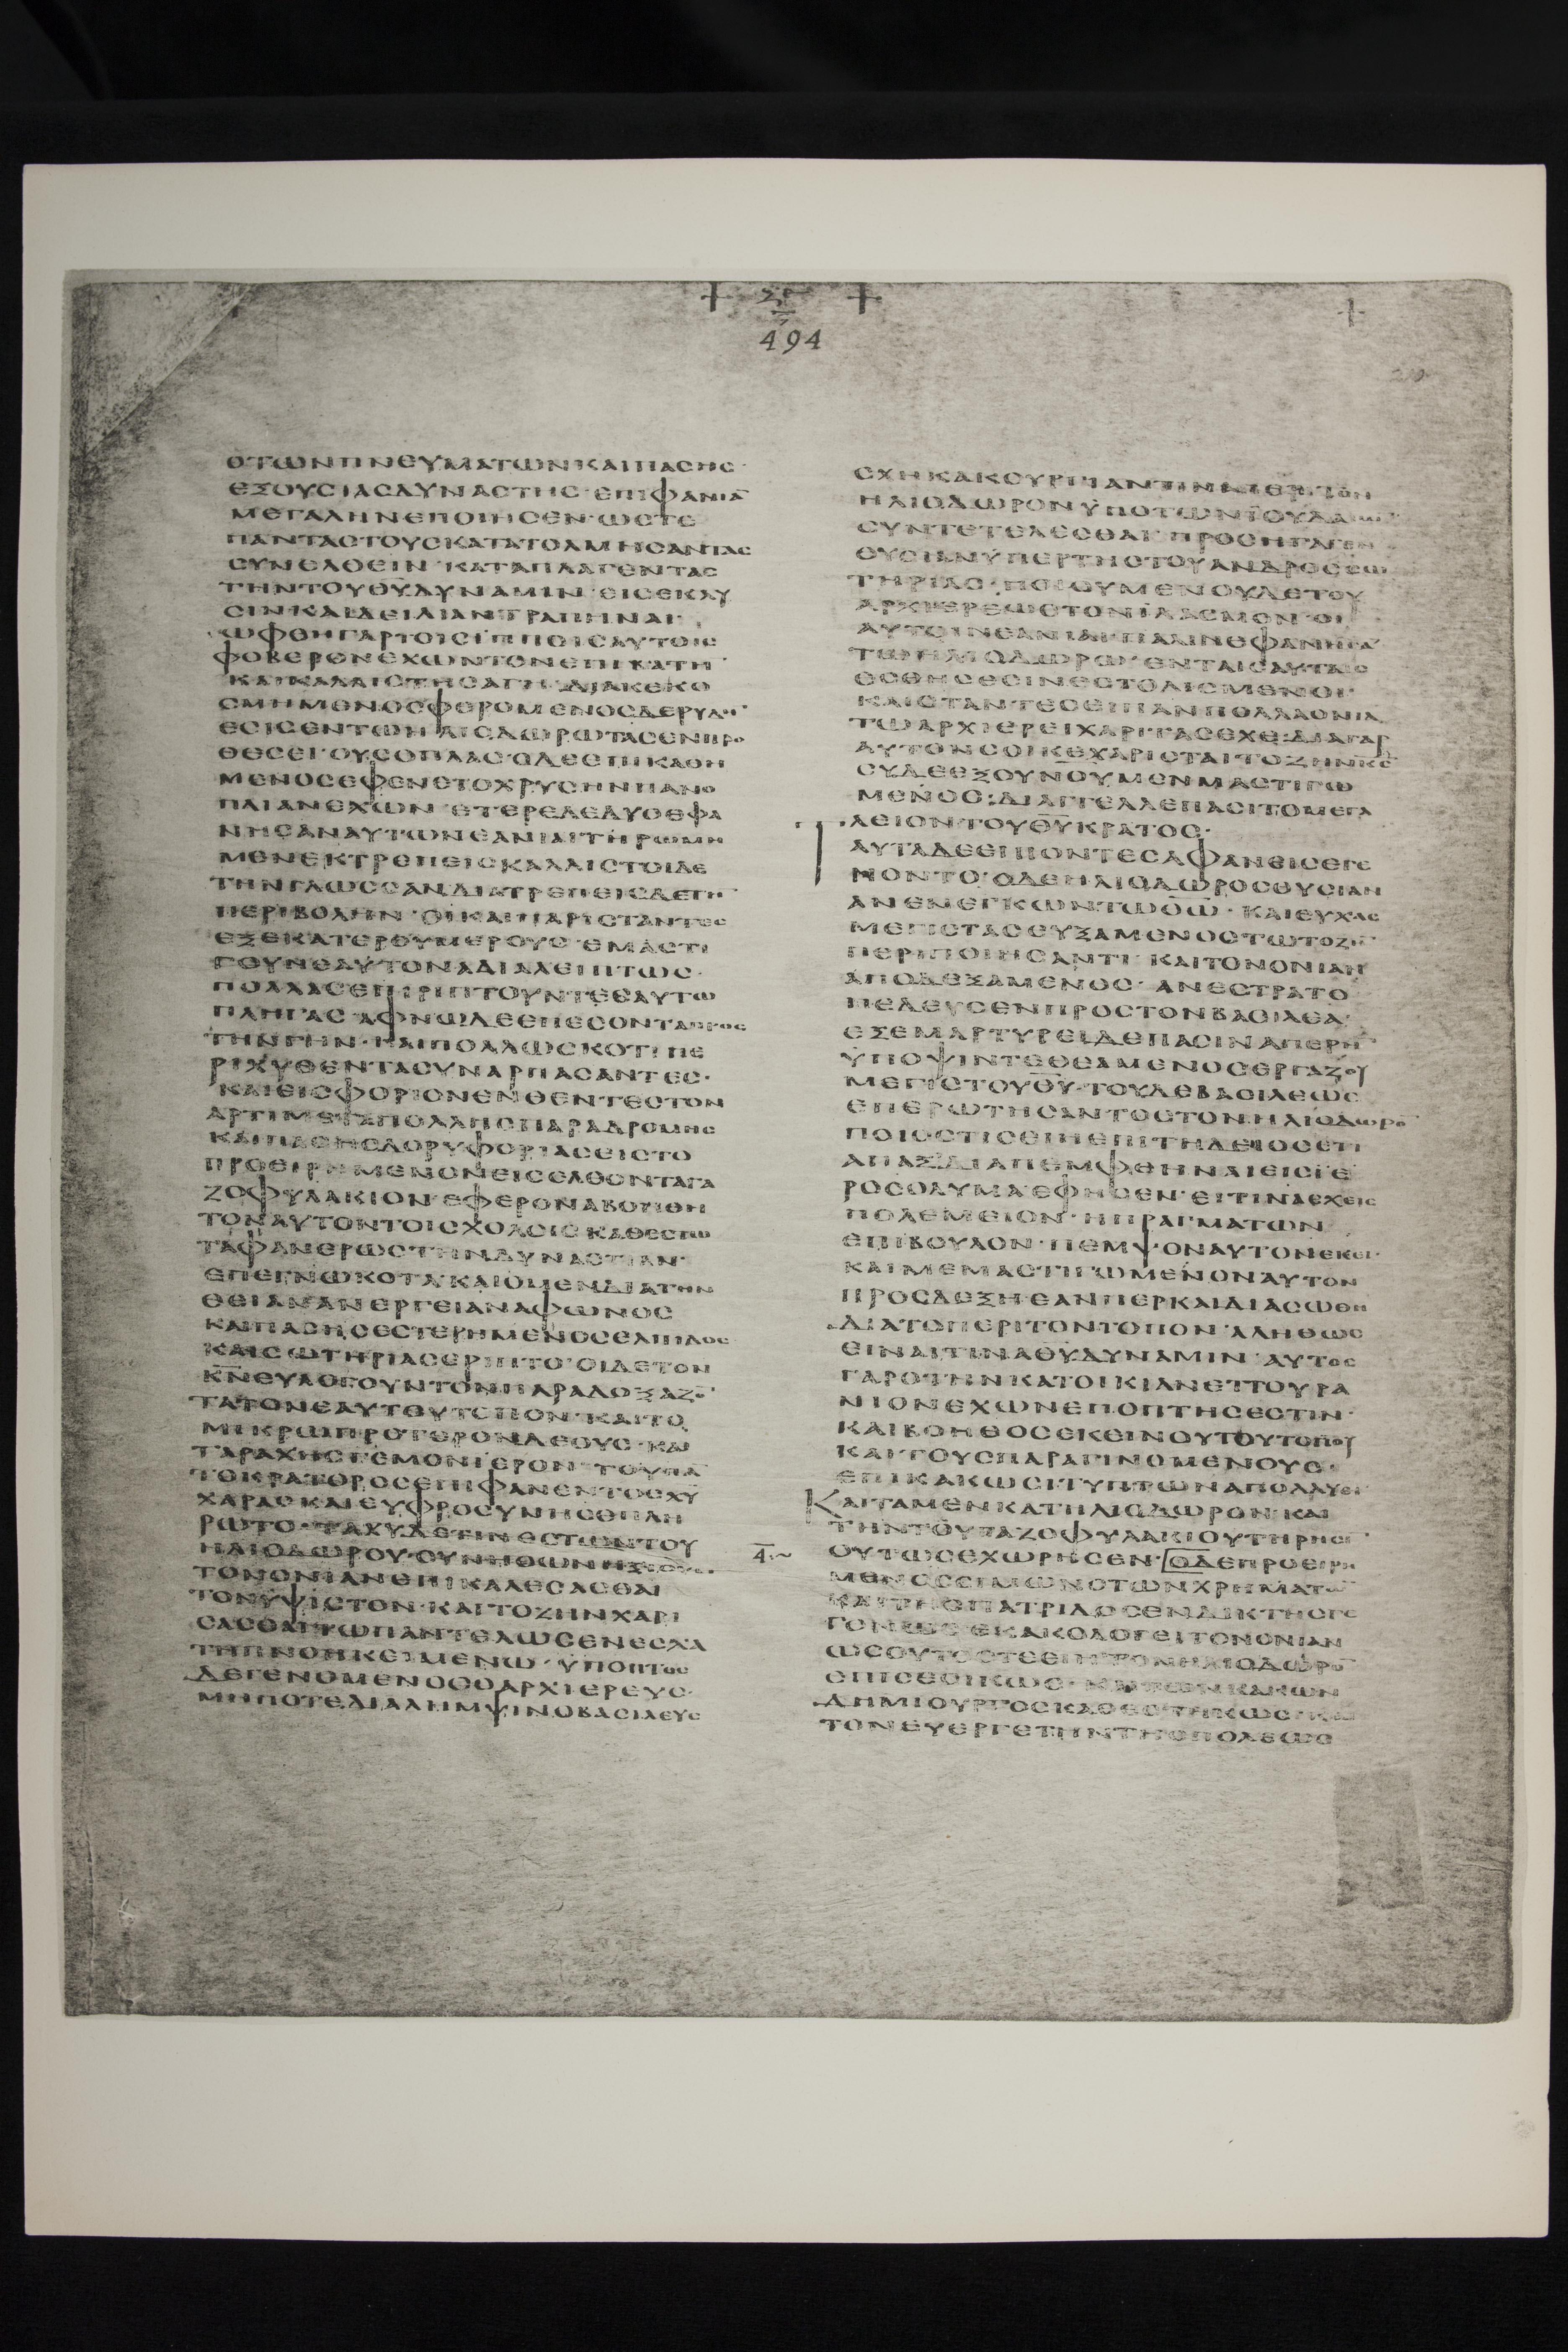 494
ΟΤΩΝΠΝΕΥΜΑΤΩΝΚΑΙΠΑCΗC·
ΕΞΟΥCΙΑCΔΥΝΑCΤΗC·ΕΠΙΦΑΝΙΑ̅
ΜΕΓΑΛΗΝΕΠΟΙΗCΕΝ·ΩCΤΕ
ΠΑΝΤΑCΤΟΥCΚΑΤΑΤΟΛΜΗCΑΝΤΑC
CΥΝΕΛΘΕΙΝ·ΚΑΤΑΠΛΑΓΕΝΤΑC
ΤΗΝΤΟΥΘ̅Υ̅ΔΥΝΑΜΙΝ·ΕΙCΕΚΛΥ
CΙΝΚΑΙΔΕΙΛΙΑΝΤΡΑΠΗΝΑΙ·
ΩΦΘΗΓΑΡΤΟΙCΙΠΠΟCΑΥΤΟΙC
ΦΟΒΕΡΟΝΕΧΩΝΤΟΝΕΠΙΚΑΤΗ
ΚΑΙΚΑΛΛΙCΤΗCΑΓΗ·ΔΙΑΚΕΚΟ
CΜΗΜΕΝΟCΦΕΡΟΜΕΝΟCΔΕΡΥΔΗ
ΕCΙCΕΝΤΩΗΛΙΟΔΩΡΩΤΑCΕΝΠΡΟ
ΘΕCΕΙ·ΟΥCΟΠΛΑC·ΟΔΕΕΠΙΚΑΘΗ
ΜΕΝΟCΕΦΕΝΕΤΟΧΡΥCΗΝΠΑΝΟ
ΠΛΙΑΝΕΧΩΝ·ΕΤΕΡΕΔΕΔΥΟΕΦΑ
ΝΗCΑΝΑΥΤΩΝΕΑΝΙΑΙΤΗΡΩΜΗ
ΜΕΝΕΚΤΡΕΠΕΙCΚΑΛΛΙCΤΟΙΔΕ
ΤΗΝΓΛΩCCΑΝΔΙΑΤΡΕΠΕΙCΔΕΤΗ̅
ΠΕΡΙΒΟΛΗΝ·ΟΙΚΑΙΠΑΡΙCΤΑΝΤΕC
ΕΞΕΚΑΤΕΡΟΥΜΕΡΟΥC·ΕΜΑCΤΙ
ΓΟΥΝΕΑΥΤΟΝΑΔΙΑΛΕΙΠΤΩC·
ΠΟΛΛΑCΕΠΙΡΙΠΤΟΥΝΤΕCΑΥΤΩ
ΠΛΗΓΑC·ΑΦΝΩΔΕΕΠΕCΟΝΤΑΠΡΟC
ΤΗΝΓΗΝ·ΚΑΙΠΟΛΛΩCΚΟΤΙΠΕ
ΡΙΧΥΘΕΝΤΑCΥΝΑΡΠΑCΑΝΤΕC·
ΚΑΙΕΙCΦΟΡΙΟΝΕΝΘΕΝΤΕCΤΟΝ
ΑΡΤΙΜΕΤΑΠΟΛΛΗCΠΑΡΑΔΡΟΜΗC
ΚΑΙΠΑCΗCΔΟΡΥΦΟΡΙΑCΕΙCΤΟ
ΠΡΟΕΙΡΗΜΕΝΟΝΕΙCΕΛΘΟΝΤΑΓΑ
ΖΟΦΥΛΑΚΙΟΝ·ΕΦΕΡΟΝΑΒΟΗΘΗ
ΤΟΝΑΥΤΟΝΤΟΙCΧΟΛΟΙC·ΚΑΘΕCΤΩ
ΤΑΦΑΝΕΡΩCΤΗΝΔΥΝΑCΤΙΑΝ·
ΕΠΕΓΝΩΚΟΤΑ·ΚΑΙΟΜΕΝΔΙΑΤΗΝ
ΘΕΙΑΝΑΝΕΡΓΕΙΑΝΑΦΩΝΟC
ΚΑΙΠΑCΗCΕCΤΕΡΗΜΕΝΟCΕΛΠΙΔΟC
ΚΑΙCΩΤΗΡΙΑCΕΡΙΠΤΟ·ΟΙΔΕΤΟΝ
Κ̅Ν̅ΕΥΛΟΓΟΥΝΤΟΝΠΑΡΑΔΟΞΑΖΟ̅
ΤΑΤΟΝΕΑΥΤΟΥΤΟΠΟΝ·ΚΑΙΤΟ
ΜΙΚΡΩΠΡΟΤΕΡΟΝΔΕΟΥC·ΚΑΙ
ΤΑΡΑΧΗCΓΕΜΟΝΙΕΡΟΝ·ΤΟΥΠΑ̅
ΤΟΚΡΑΤΟΡΟCΕΠΙΦΑΝΕΝΤΟCΧΥ
ΧΑΡΑCΚΑΙΕΥΦΡΟCΥΝΗCΕΠΛΗ
ΡΩΤΟ·ΤΑΧΥΔΕΤΙΝΕCΤΩΝΤΟΥ
ΗΛΙΟΔΩΡΟΥ·CΥΝΗΘΩΝΗΞΙΟΥ
ΤΟΝΟΝΙΑΝΕΠΙΚΑΛΕCΑCΘΑΙ
ΤΟΝΥΨΙCΤΟΝ·ΚΑΙΤΟΖΗΝΧΑΡΙ
CΑCΘΑΙΤΩΠΑΝΤΕΛΩCΕΝΕCΧΑ
ΤΗΠΝΟΗΚΕΙΜΕΝΩ·ΥΠΟΠΤΟC
ΔΕΓΕΝΟΜΕΝΟCΟΑΡΧΙΕΡΕΥC·
ΜΗΠΟΤΕΔΙΑΛΗΜΨΙΝΟΒΑCΙΛΕΥC
CΧΗΚΑΚΟΥΡΓΙΑΝΤΙΝΑΠΕΡΙΤΟΝ
ΗΛΙΟΔΩΡΟΝΥΠΟΤΩΝΙΟΥΔΑΙΩΝ
CΥΝΤΕΤΕΛΕCΘΑΙ·ΠΡΟCΗΓΑΓΕΝ
ΘΥCΙΑΝΥΠΕΡΤΗCΤΟΥΑΝΔΡΟCCΩ
ΤΗΡΙΑC·ΠΟΙΟΥΜΕΝΟΥΔΕΤΟΥ
ΑΡΧΙΕΡΕΩCΤΟΝΙΛΑCΜΟΝ·ΟΙ
ΑΥΤΟΙΝΕΑΝΙΑΙΠΑΛΙΝΕΦΑΝΗCΑ̅
ΤΩΗΛΙΟΔΩΡΩ·ΕΝΤΑΙCΑΥΤΑΙC
ΕCΘΗCΕCΙΝΕCΤΟΛΙCΜΕΝΟΙ·
ΚΑΙCΤΑΝΤΕCΕΙΠΑΝΠΟΛΛΑΟΝΙΑ
ΤΩΑΡΧΙΕΡΕΙΧΑΡΙΤΑCΕΧΕ·ΔΙΑΓΑΡ
ΑΥΤΟΝCΟΙΚΕΧΑΡΙCΤΑΙΤΟΖΗΝΚC
CΥΔΕΕΞΟΥΝΟΥΜΕΝΜΑCΤΙΓΩ
ΜΕΝΟC:ΔΙΑΓΓΕΛΛΕΠΑCΙΤΟΜΕΓΑ
ΛΕΙΟΝΤΟΥΘ̅Υ̅ΚΡΑΤΟC·
ΑΥΤΑΔΕΕΙΠΟΝΤΕCΑΦΑΝΕΙCΕΓΕ
ΝΟΝΤΟ·ΟΔΕΗΛΙΟΔΩΡΟCΘΥCΙΑΝ
ΑΝΕΝΕΓΚΩΝΤΩΘ̅Ω̅·ΚΑΙΕΥΧΑC
ΜΕΓΙCΤΑCΕΥΞΑΜΕΝΟCΤΩΤΟΖΗ̅
ΠΕΡΙΠΟΙΗCΑΝΤΙ·ΚΑΙΤΟΝΟΝΙΑΝ
ΑΠΟΔΕΞΑΜΕΝΟC·ΑΝΕCΤΡΑΤΟ
ΠΕΔΕΥCΕΝΠΡΟCΤΟΝΒΑCΙΛΕΑ·
ΕΞΕΜΑΡΤΥΡΕΙΔΕΠΑCΙΝΑΠΕΡΗ̅
ΥΠΟΨΙΝΤΕΘΕΑΜΕΝΟCΕΡΓΑΤΟΥ
ΜΕΓΙCΤΟΥΘ̅Υ̅·ΤΟΥΔΕΒΑCΙΛΕΩC
ΕΠΕΡΩΤΗCΑΝΤΟCΤΟΝΗΛΙΟΔΩΡΟ̅
ΠΟΙΟCΤΙCΕΙΗΕΠΙΤΗΔΕΙΟCΕΤΙ
ΑΠΑΞΔΙΑΠΕΜΦΘΗΝΑΙΕΙCΙΕ
ΡΟCΟΛΥΜΑ·ΕΦΗCΕΝ·ΕΙΤΙΝΑΕΧΕΙC
ΠΟΛΕΜΕΙΟΝ·ΗΠΡΑΓΜΑΤΩΝ
ΕΠΙΒΟΥΛΟΝ·ΠΕΜΨΟΝΑΥΤΟΝΕΚΕΙ·
ΚΑΙΜΕΜΑCΤΙΓΩΜΕΝΟΝΑΥΤΟΝ
ΠΡΟCΔΕΞΗΕΑΝΠΕΡΚΑΙΔΙΑCΩΘΗ
ΔΙΑΤΟΠΕΡΙΤΟΝΤΟΠΟΝ·ΑΛΗΘΩC
ΕΙΝΑΙΤΙΝΑΘ̅Υ̅ΔΥΝΑΜΙΝ·ΑΥΤΟC
ΓΑΡΟΤΗΝΚΑΤΟΙΚΙΑΝΕΠΟΥΡΑ
ΝΙΟΝΕΧΩΝΕΠΟΠΤΗCΕCΤΙΝ·
ΚΑΙΒΟΗΘΟCΕΚΕΙΝΟΥΤΟΥΤΟΠΟΥ
ΚΑΙΤΟΥCΠΑΡΑΓΙΝΟΜΕΝΟΥC·
ΕΠΙΚΑΚΩCΙΤΥΠΤΩΝΑΠΟΛΛΥΕΙ
ΚΑΙΤΑΜΕΝΚΑΤΗΛΙΟΔΩΡΟΝ·ΚΑΙ
ΤΗΝΤΟΥΓΑΖΟΦΥΛΑΚΙΟΥΤΗΡΗCΙ̅
ΟΥΤΩCΕΧΩΡΗCΕΝ·ΟΔΕΠΡΟΕΙΡΗ
ΜΕΝΟCCΙΜΩΝΟΤΩΝΧΡΗΜΑΤΩ̅
ΚΑΙΤΗCΠΑΤΡΙΔΟCΕΝΔΙΚΤΗCΓΕ
ΓΟΝΩCΕΚΑΚΟΛΟΓΕΙΤΟΝΟΝΙΑΝ
ΩCΟΥΤΟCΤΕΕΙΗΤΟΝΗΛΙΟΔΩΡΟ̅
ΕΠΙCΕCΙΚΩC·ΚΑΙΤΩΝΚΑΚΩΝ
ΔΗΜΙΟΥΡΓΟCΚΑΘΕCΤΗΚΩC·ΚΑΙ
ΤΟΝΕΥΕΡΓΕΤΗΝΤΗCΠΟΛΕΩC